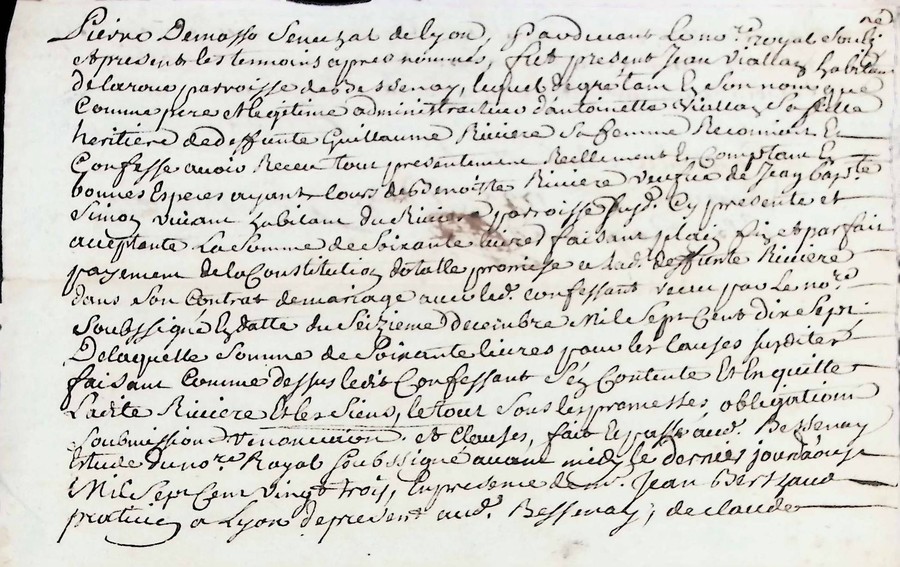 Pierre Demasso Senechal de Lyon, Pardevant le no.re royal soubz.né
et present les temoins apres nommés, fut present Jean Viallon habitant
de laroue parroisse de Bessenay, lequel de gré tam en son nom que
comme pere et legitime administrateur d'antoinette Viallon sa fille
heritiere de deffunte Guillaume Riviere sa femme Reconnoit et
Confesse avoir Receu tout presentement Reellement et Comptant en
bonnes Especes ayant cours de Benoiste Riviere veufve de Jean Bapt.te
Simon vivant habitant du Riviere parroisse susd. Cy presente et
acceptante La somme de Soixante livres faisant plain fin et parfait
payement de la Constitution dotalle promise a lad. deffunte Riviere
dans son Contrat de mariage avec led. confessant receu par le no.re
soubssigné En datte du Seizieme decembre Mil Sept Cent dix Sept
De laquelle Somme de Soixante livres pour les causes susdites
faisant Comme dessus ledit Confessant S'en Contente Et En quitte
Ladite Riviere Et les Siens, le tout sous les promesses obligations
Soubmission renonciation et Clauses, fait Et passé aud. Bessenay
Estude du no.re Royal soubssigné avant midy le dernier jour d'aoust
Mil Sept Cent Vingt trois, En presence de Jean Bertraud
praticien a Lyon de present aud. Bessenay, de claude